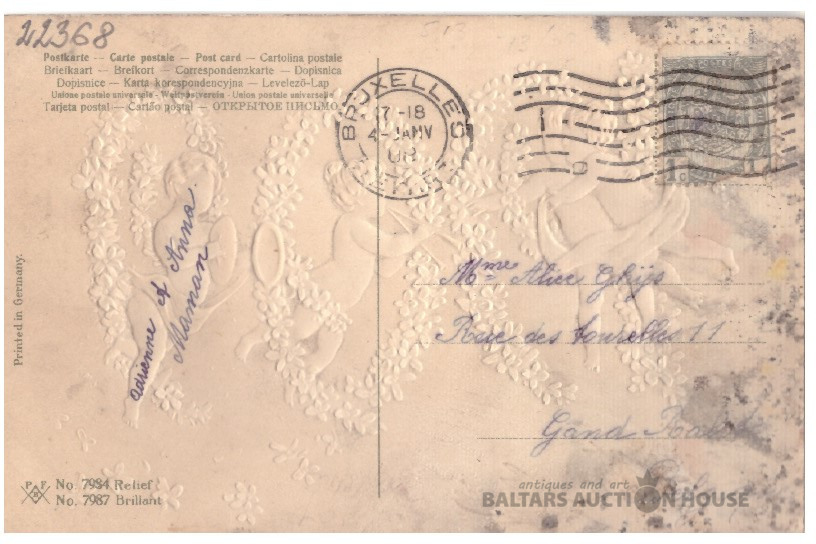 22368
Postkarte — Carte postale — Post card — Cartolina postale
Briefkaart — Brefkort — Correspondenzkarte — Dopisnica
Dopisnice — Karta korespondencyjna — Levelező-Lap
Unione postale universale - Weltpostverein - Union postale universelle
Tarjeta postal — Cartão postal — ОТКРЫТОЕ ПИСЬМО
BRUXELLES
17-18
4-JANV
08
1c
1
Adrienne et Anna
Maman
Mme Alice Ghijs
Rue des tourelles 11
Gand
Printed in Germany.
P F
B
No. 7984 Relief
No. 7987 Brillant
antiques and art
BALTARS AUCTION HOUSE